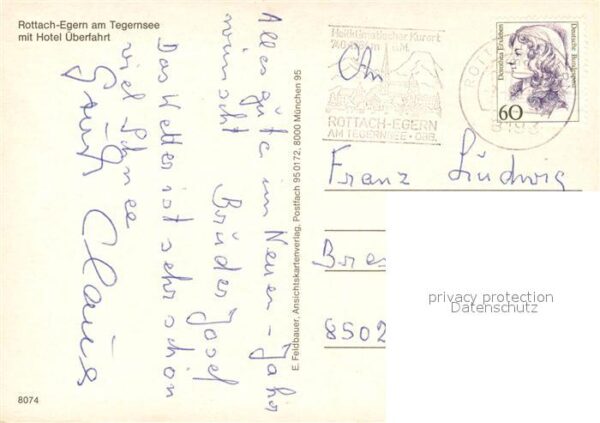 Rottach-Egern am Tegernsee
mit Hotel Überfahrt
Alles gute im Neuen-Jahr
wünscht Bruder Josef
Das Wetter ist sehr schön
viel Schnee
Gruß Claus
8074
E. Feldbauer, Ansichtskartenverlag, Postfach 950172, 8000 München 95
Heilklimatischer Kurort
ROTTACH-EGERN
AM TEGERNSEE · OBB.
8183
Deutsche Bundespost
60
An
Franz Ludwig
8502
privacy protection
Datenschutz